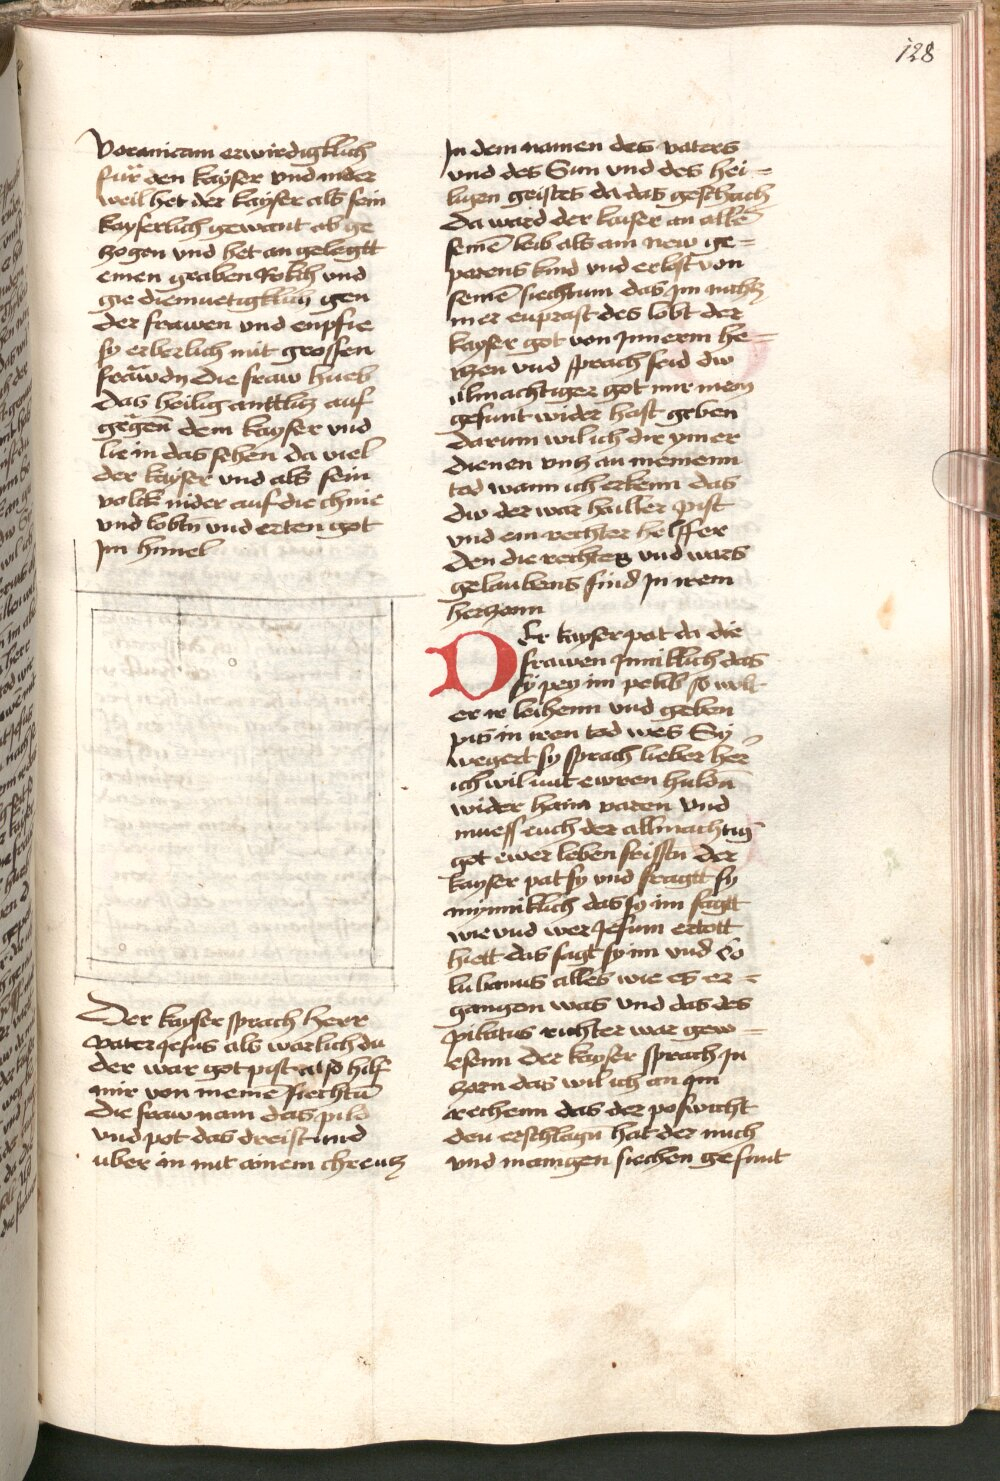 128
Voranicam erwirdigklich
für den kayser vnd nider
weil het der kayser als sein
kayserlich gewant ab ge
zogen vnd het an gelegtt
einen graben Rokch vnd
gie diemuetigklich gen
der frawen vnd enpfie
sy erberlich mit grossen
frawdn Die fraw hueb
das heilig anttlitz auf
gegen dem kayser vnd
lie in das sehen da viel
der kayser vnd als sein
volck nider auf die chnie
vnd lobtn vnd erten got
Im himel
Der kayser sprach herr
vater Jesus als warlich du
der war got pist also hilf
mir von meinē siechtū
die fraw nam das pild
vnd pot das dreist und
uber in mit ainem chreutz
In dem namen des vaters
vnd des Sun vnd des hei=
ligen geistes da das geschach
Da ward der kaiser an allē
seinē leib als ain new ge=
porens kind vnd erlost von
seinē siechtum das Im nichtz
mer enprast des lobt der
kayser got von Innerm he=
rtzen vnd sprach seid dw
almachtiger got mir mein
gesunt wider hast geben
darum wil ich dir ymer
dienen vntz an meinenn
tod wann ich erkenn das
dw der war hailler pist
vnd ein rechter helffer
den die rechtes vnd wars
gelaubens sind In irem
hertzenn
DEr kayser pat da die
frawen Inniklich das
sy pey im pelib so wolt
er ir leihenn vnd geben
pis in iren tod wes Sy
wegert sy sprach lieber her
ich wil mit ewren huldn
wider haim varen vnd
muess euch der allmachtig
got ewer leben fristn der
kayser pat sy vnd fragtt sy
mynniklich das sy im sagtt
wie vnd wer Jesum ertott
hiett das sagt sy im vnd vo
lusianus alles wie es er=
gangen was vnd das des
pilatus richter war gew=
esenn Der kayser sprach In
zorn das wil ich an Im
rechenn das der poswicht
den erschlagn hat der mich
vnd manigen siechen gesunt